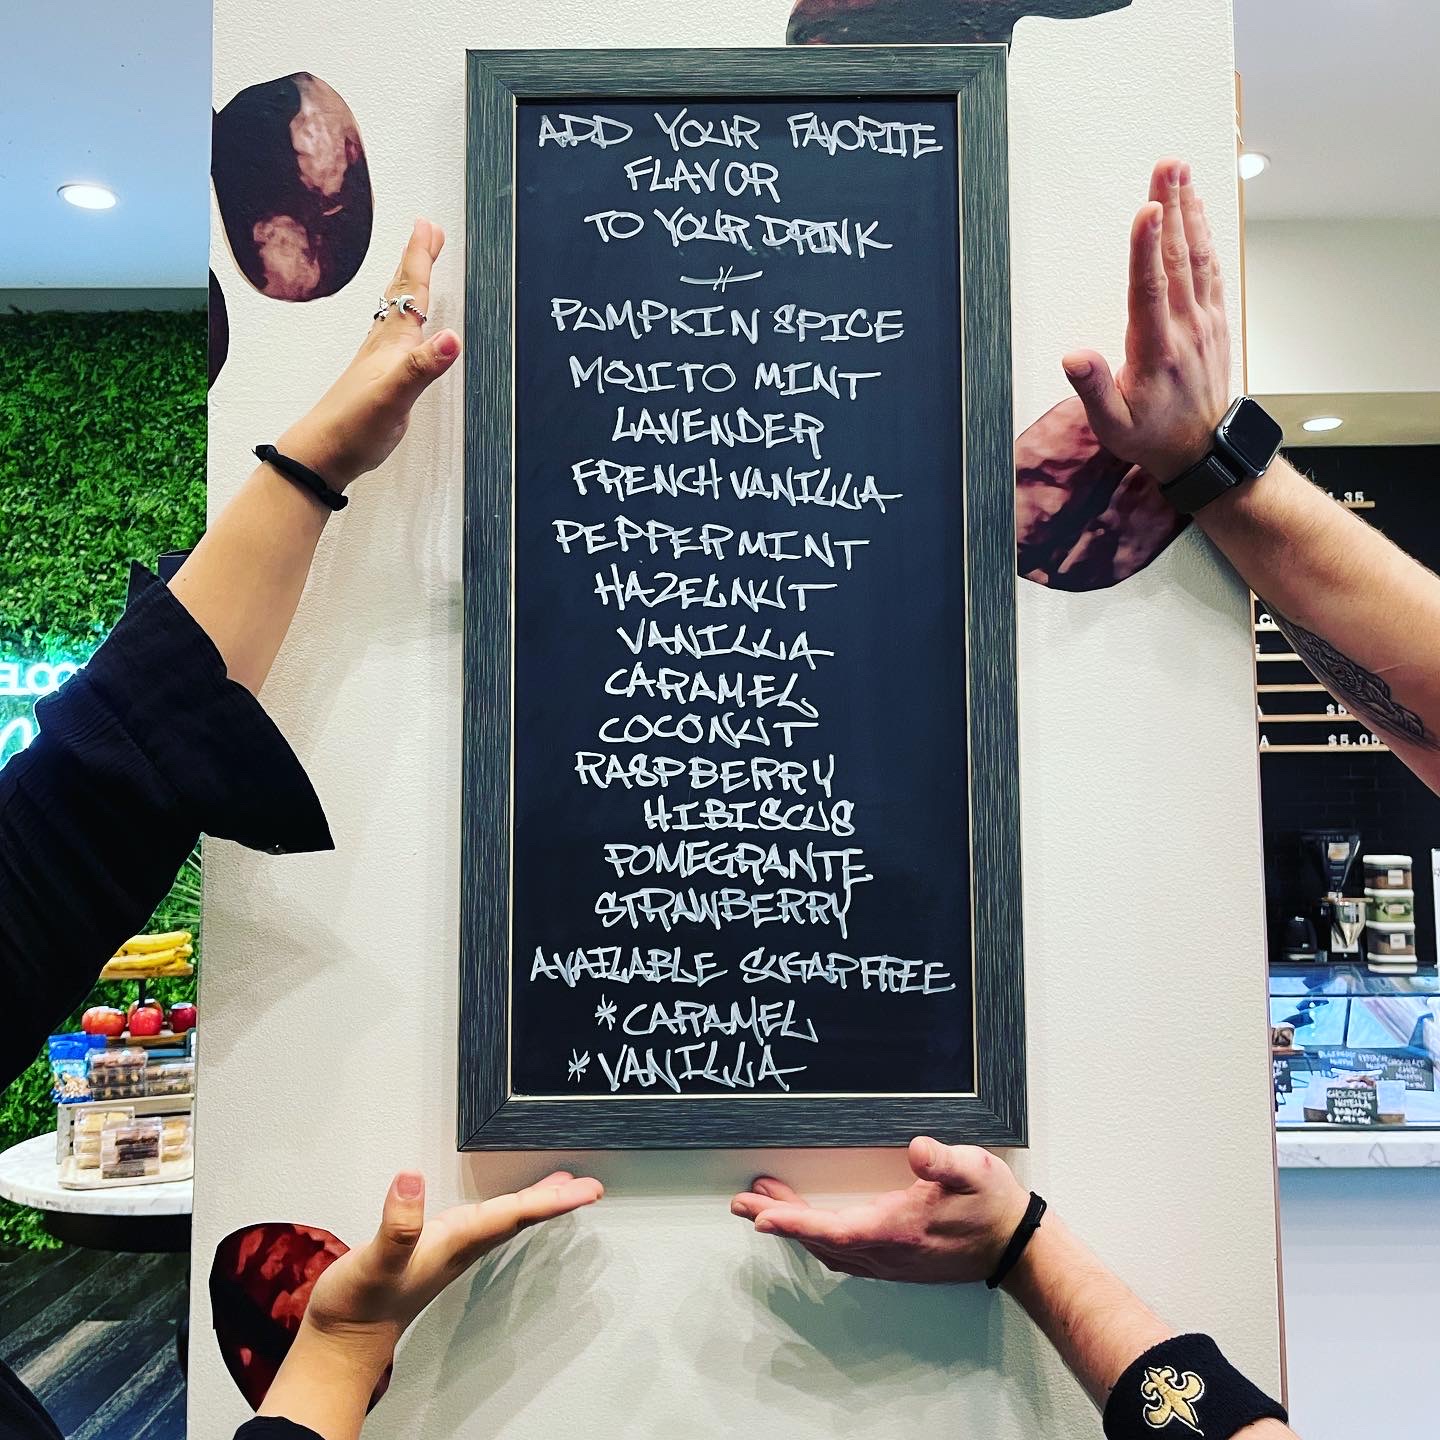 ADD YOUR FAVORITE
FLAVOR
TO YOUR DRINK
PUMPKIN SPICE
MOJITO MINT
LAVENDER
FRENCH VANILLA
PEPPERMINT
HAZELNUT
VANILLA
CARAMEL
COCONUT
RASPBERRY
HIBISCUS
POMEGRANTE
STRAWBERRY
AVAILABLE SUGAR FREE
*CARAMEL
*VANILLA
$5.05
CHOCOLATE
NUTELLA